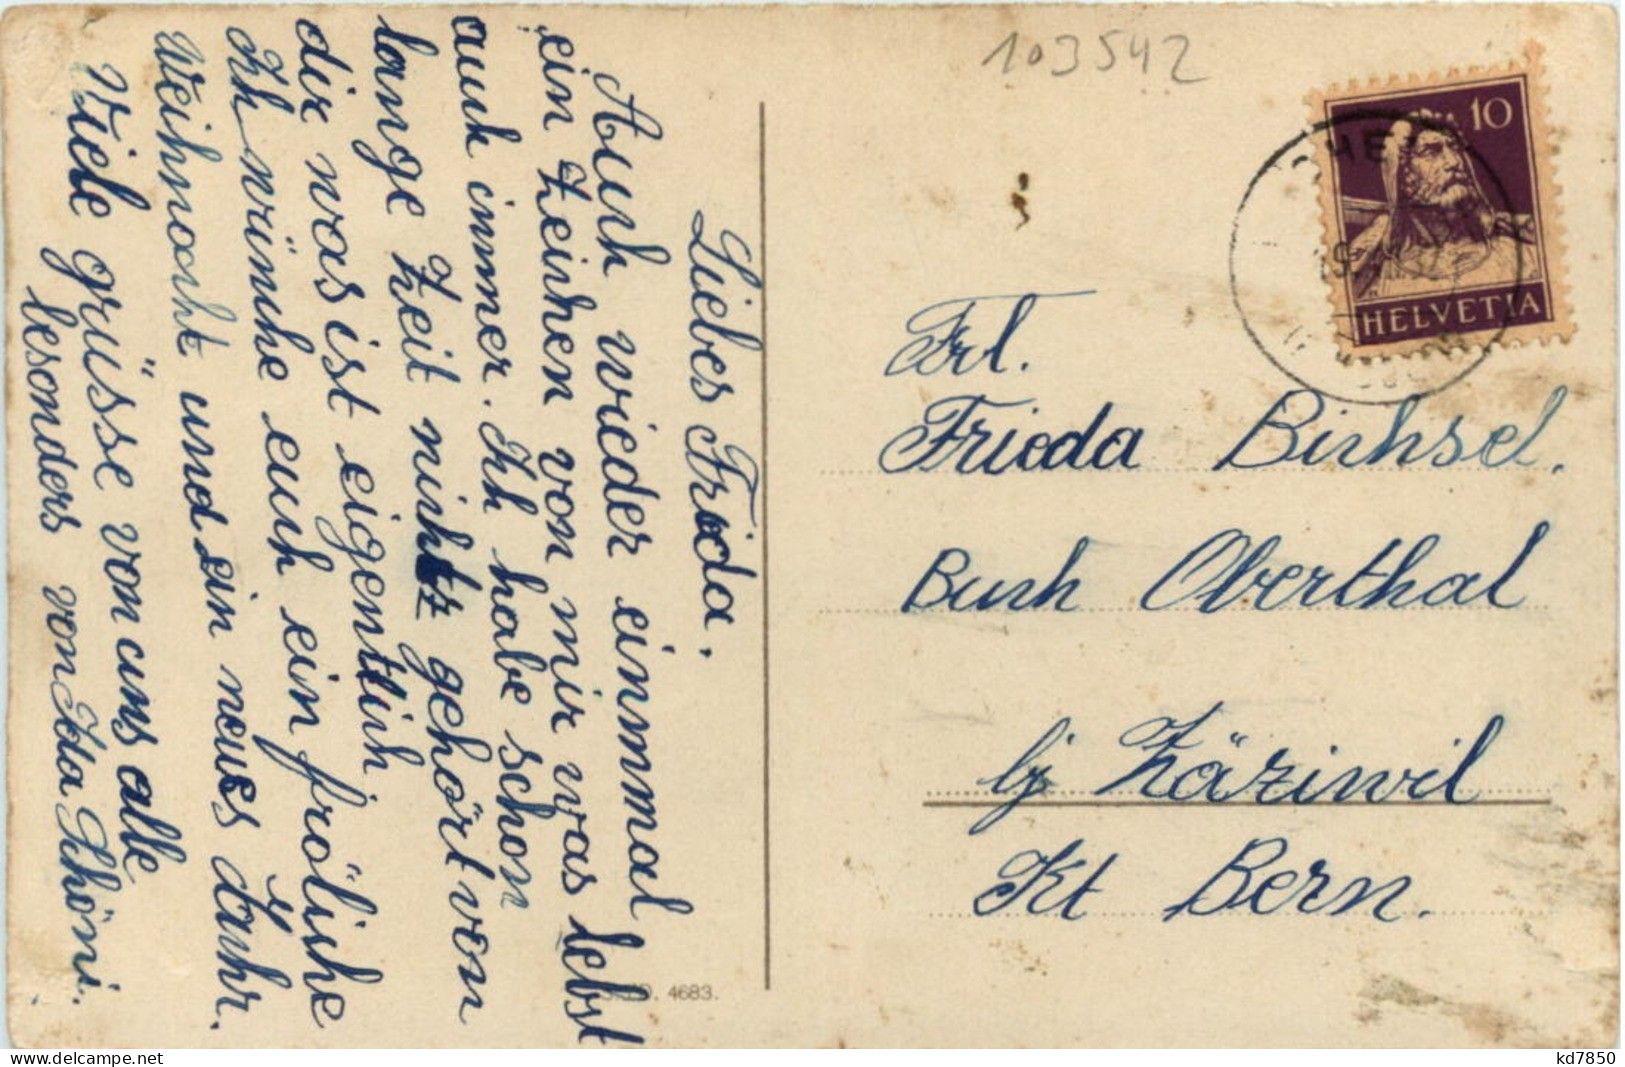 Liebes Frieda.
Auch wieder einmmal
ein Zeichen von mir was lebst
auch immer. Ich habe schon
lange Zeit nichts gehört von
dir was ist eigentlich
Ich wünche euch ein frölische
Weihnacht und ein neues Jahr.
Viele grüsse von uns alle
besonders von Ida Schöni.
103542
10
HELVETIA
Frl.
Frieda Bichsel.
Buch Oberthal
bj Zäziwil
Kt Bern.
4683.
kd7850